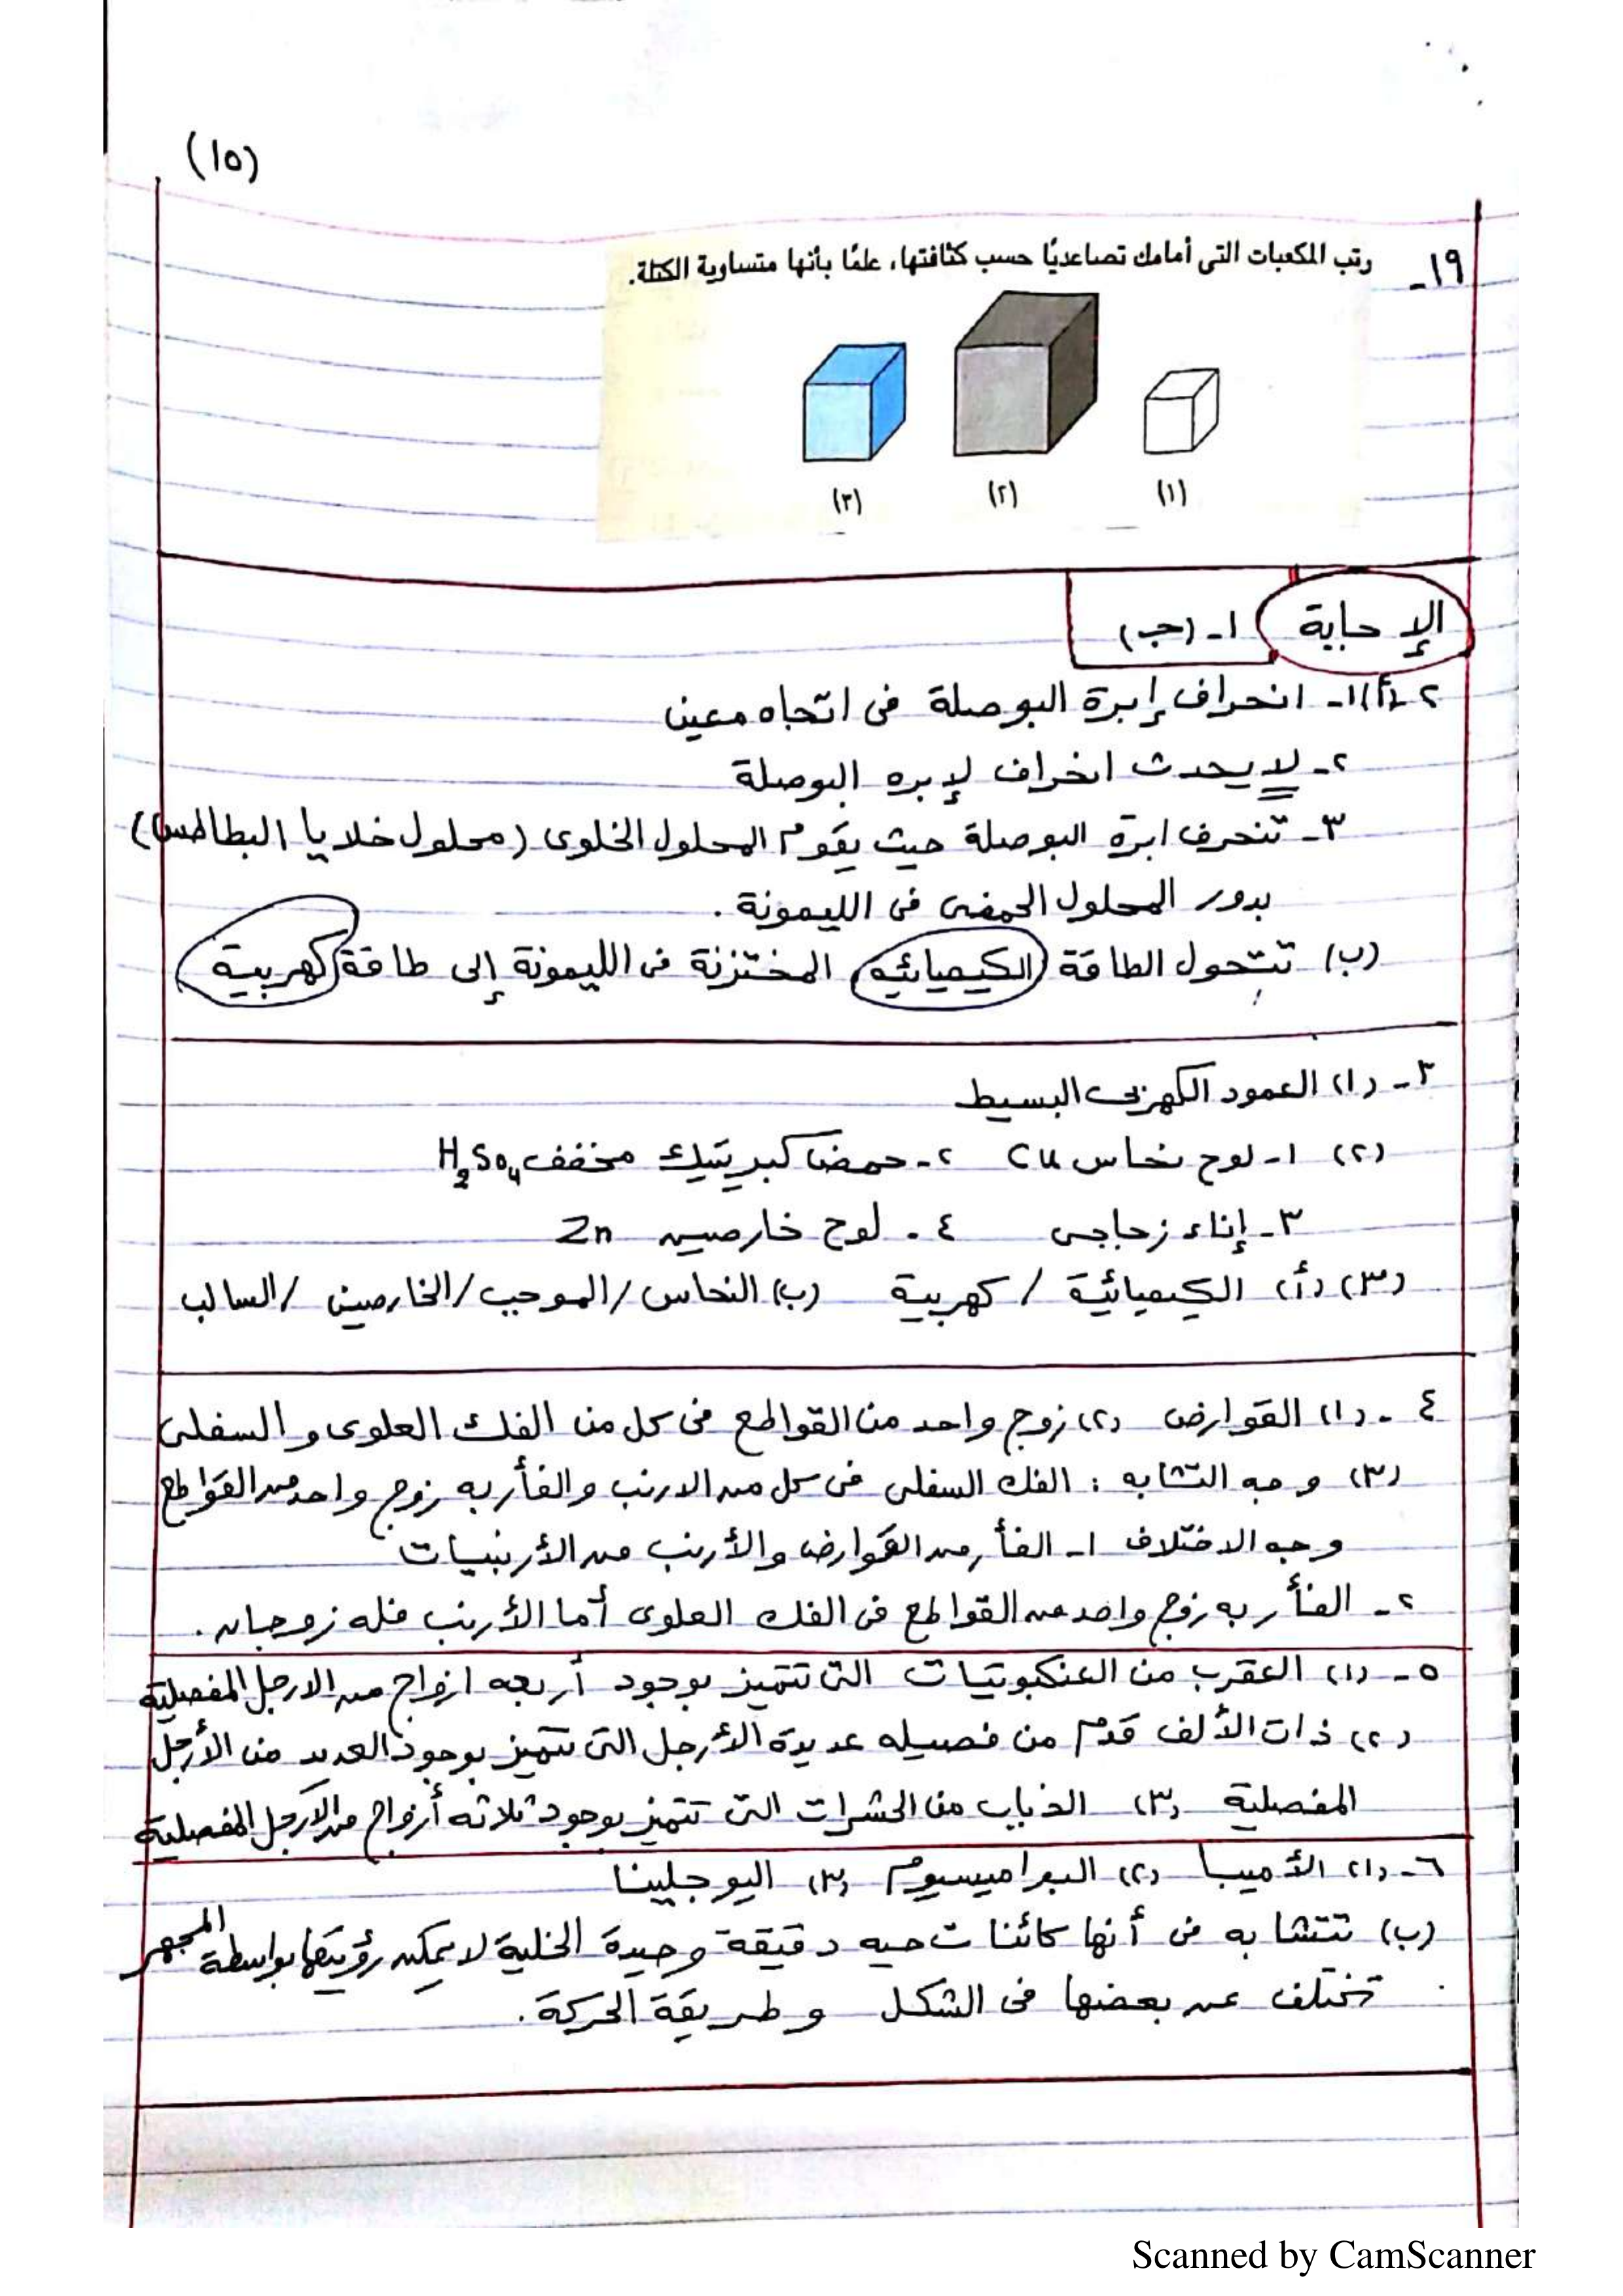 (١٥)
١٩- رتب المكعبات التى أمامك تصاعديًا حسب كثافتها، علمًا بأنها متساوية الكتلة.
(١) (٢) (٣)
الإجابة ١- (جـ)
٢- (أ) ١- انحراف إبرة البوصلة فى اتجاه معين
٢- لا يحدث انحراف لإبره البوصلة
٣- تنحرف ابرة البوصلة حيث يقوم المحلول الخلوى (محلول خلايا البطاطس)
بدور المحلول الحمضى فى الليمونة .
(ب) تتحول الطاقة الكيميائيه المختزنة فى الليمونة إلى طاقة كهربية
٣- (١) العمود الكهربى البسيط
(٢) ١- لوح نحاس Cu ٢- حمض كبريتيك مخفف H₂So₄
٣- إناء زجاجى ٤- لوح خارصين Zn
(٣) (أ) الكيميائية / كهربية (ب) النحاس / الموجب / الخارصين / السالب
٤- (١) القوارض (٢) زوج واحد من القواطع فى كل من الفك العلوى والسفلى
(٣) وجه التشابه : الفك السفلى فى كل من الارنب والفأر به زوج واحد من القواطع
وجه الاختلاف ١- الفأر من القوارض والأرنب من الأرنبيات
٢- الفأر به زوج واحد من القواطع فى الفك العلوى أما الأرنب فله زوجان .
٥- (١) العقرب من العنكبوتيات التى تتميز بوجود أربعه ازواج من الارجل المفصلية
(٢) ذات الألف قدم من فصيله عديدة الأرجل التى تتميز بوجود العديد من الأرجل
المفصلية (٣) الذباب من الحشرات التى تتميز بوجود ثلاثه أزواج من الأرجل المفصلية
٦- (١) الأميبا (٢) البراميسيوم (٣) اليوجلينا
(ب) تتشابه فى أنها كائنات حيه دقيقة وحيدة الخلية لا يمكن رؤيتها بواسطة المجهر
تختلف عن بعضها فى الشكل وطريقة الحركة .
Scanned by CamScanner